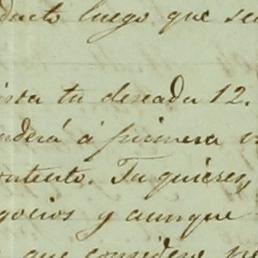 ducto luego que se
tu deseada 12.
nderá á primera v
ontento. Tu quieres,
gocios y aunque
que considero pe